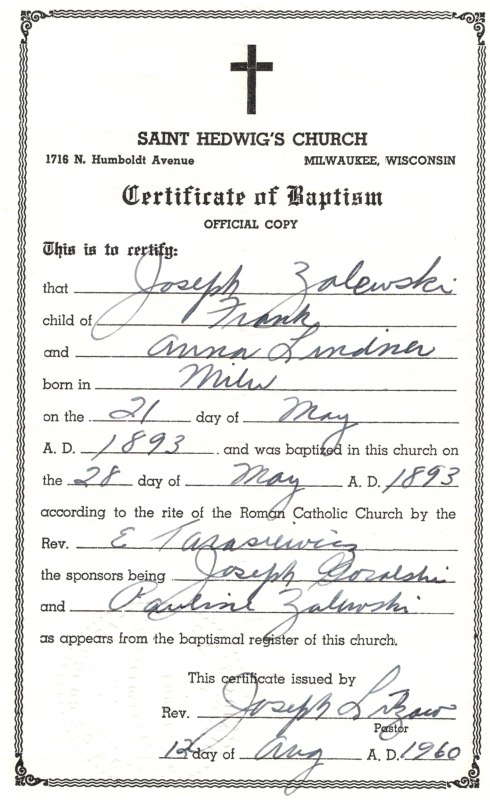 SAINT HEDWIG'S CHURCH
1716 N. Humboldt Avenue MILWAUKEE, WISCONSIN
Certificate of Baptism
OFFICIAL COPY
This is to certify:
that Joseph Zalewski
child of Frank
and Anna Lindner
born in Milw
on the 21 day of May
A. D. 1893 and was baptized in this church on
the 28 day of May A. D. 1893
according to the rite of the Roman Catholic Church by the
Rev. E Tarasiewicz
the sponsors being Joseph Goralski
and Pauline Zalewski
as appears from the baptismal register of this church.
This certificate issued by
Rev. Joseph
Pastor
12 day of Aug A. D. 1960